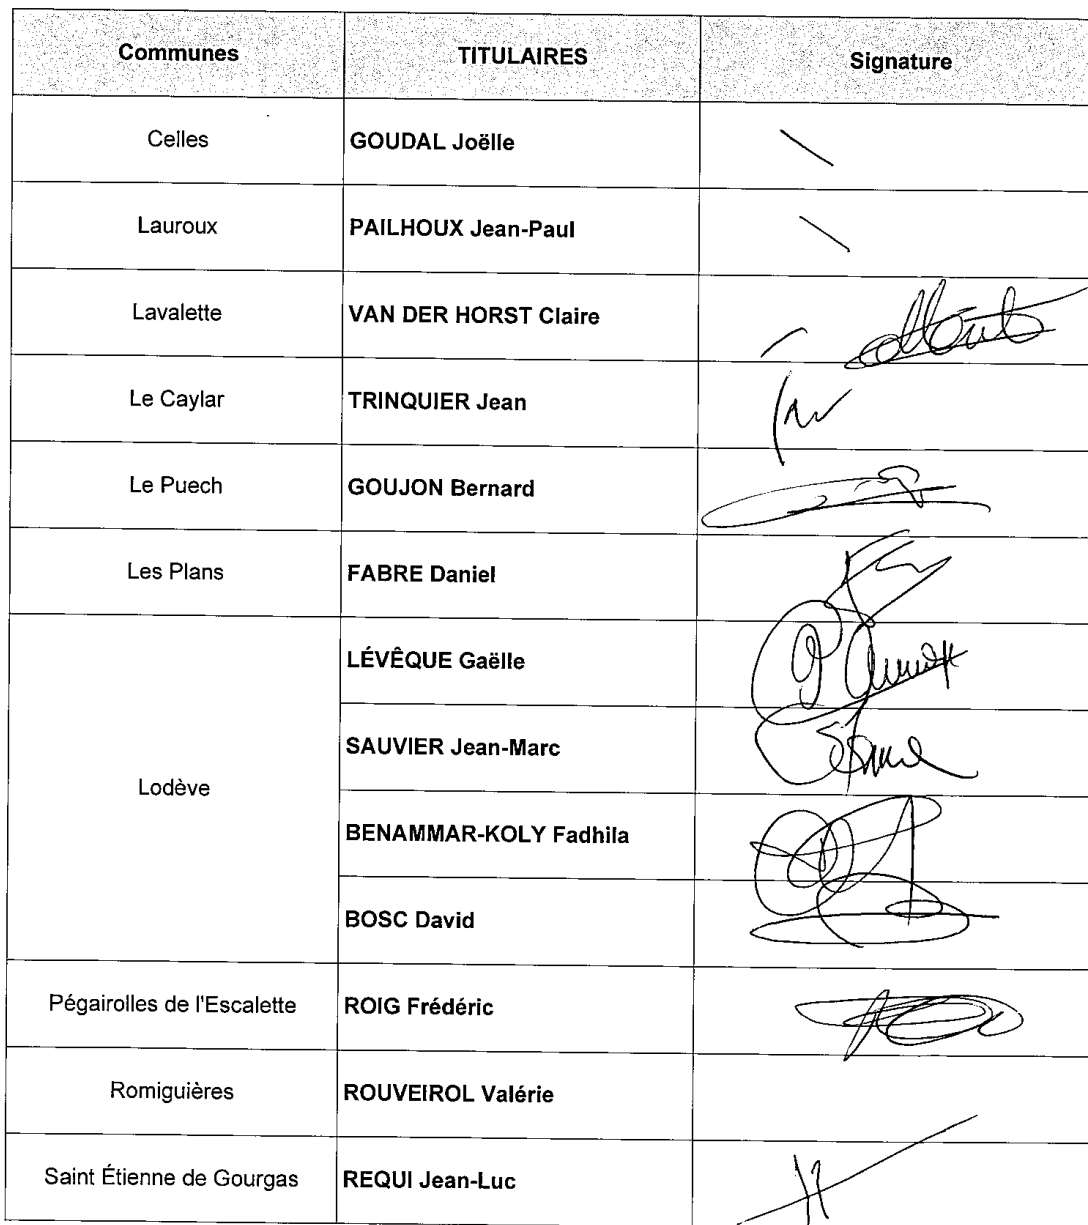 Communes TITULAIRES Signature
Celles GOUDAL Joëlle
Lauroux PAILHOUX Jean-Paul
Lavalette VAN DER HORST Claire
Le Caylar TRINQUIER Jean
Le Puech GOUJON Bernard
Les Plans FABRE Daniel
LÉVÊQUE Gaëlle
SAUVIER Jean-Marc
Lodève
BENAMMAR-KOLY Fadhila
BOSC David
Pégairolles de l'Escalette ROIG Frédéric
Romiguières ROUVEIROL Valérie
Saint Étienne de Gourgas REQUI Jean-Luc